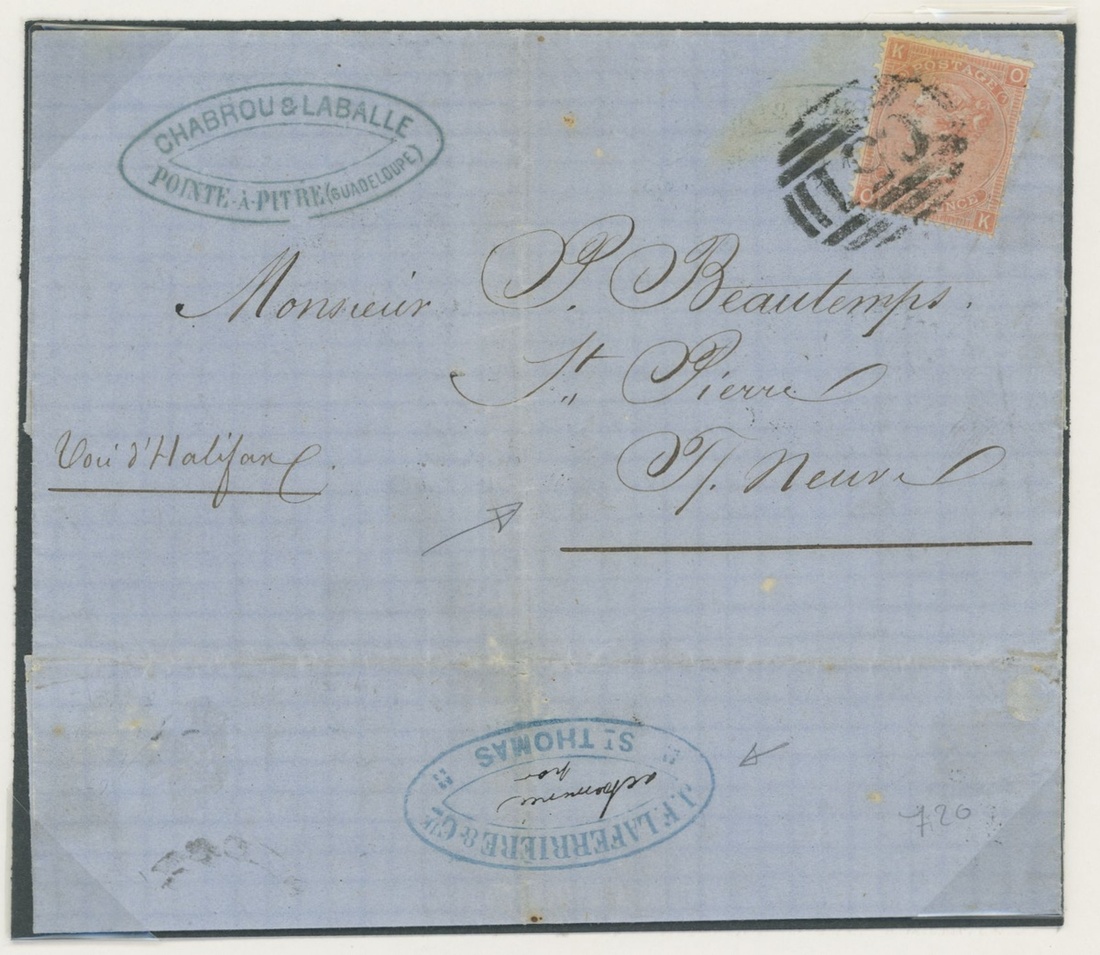 CHABROU & LABALLE
POINTE-À-PITRE (GUADELOUPE)
K O
POSTAGE
O K
C51
Monsieur P. Beautemps.
St,, Pierre
Voie d'Halifax.
T/. Neuve
J. F. LAFERRIÈRE & Cie
acheminée
par
ST THOMAS
720